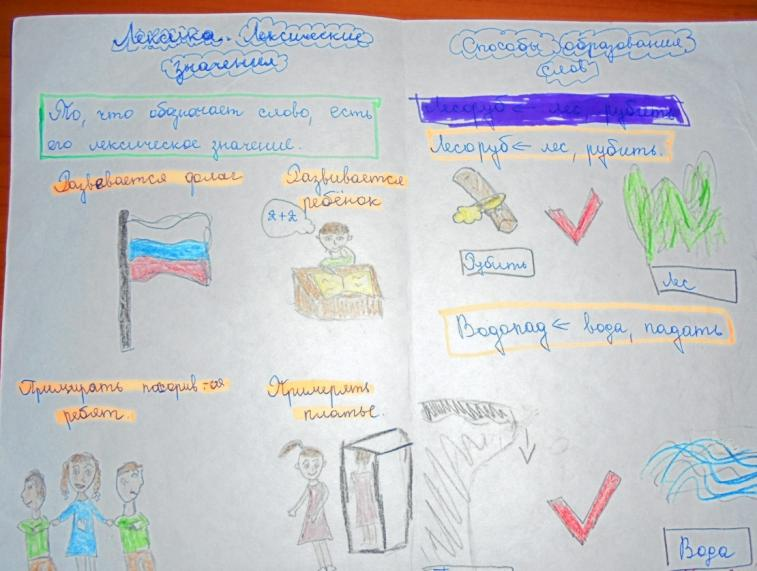 Лексика. Лексические
значения
То, что обозначает слово, есть
его лексическое значение.
Развевается флаг
Развивается
ребёнок
2+2
Примирять поссорив-ся
ребят.
Примерять
платье.
Способы образования
слов
Лесоруб ← лес, рубить
Лесоруб ← лес, рубить.
Рубить
Лес
Водопад ← вода, падать
Вода